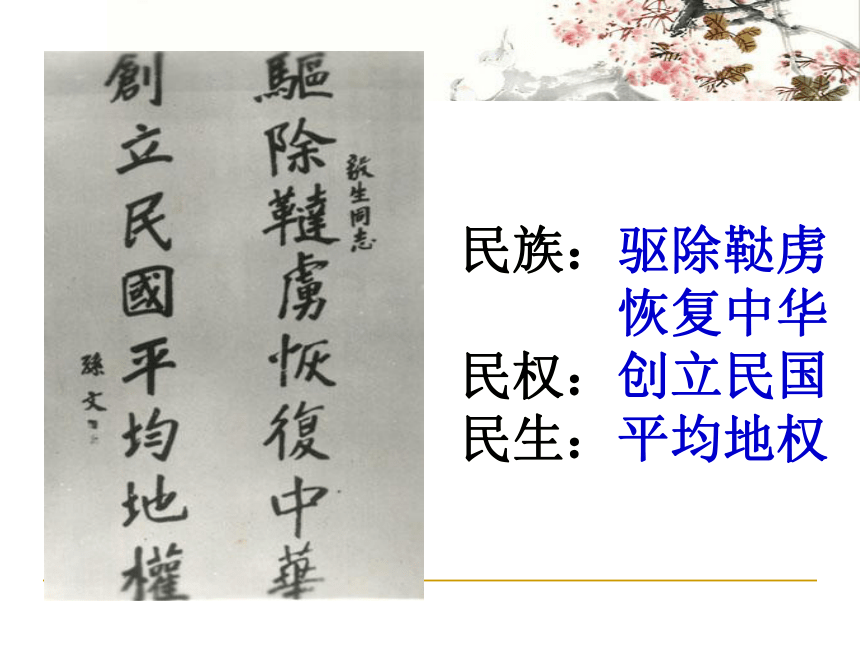 驅除韃虜恢復中華
毅生同志
創立民國平均地權
孫文
民族：驱除鞑虏
恢复中华
民权：创立民国
民生：平均地权